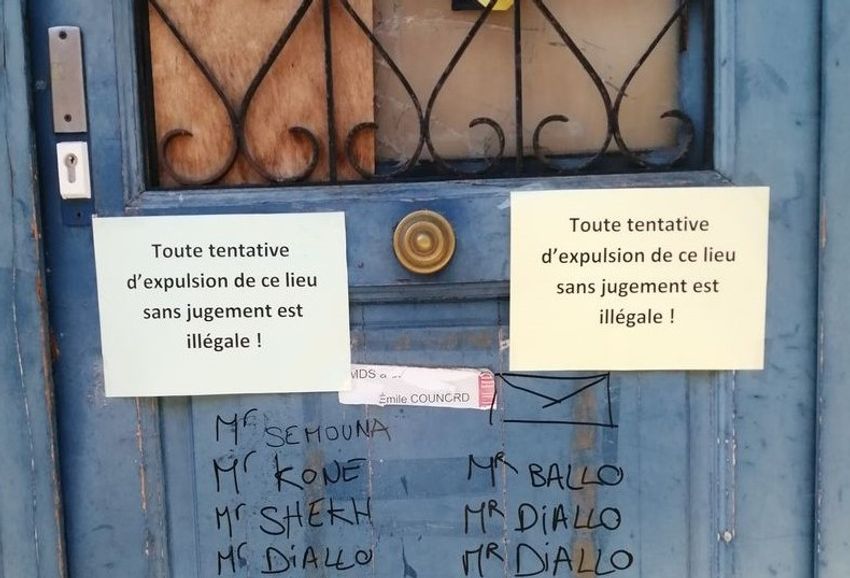 Toute tentative
d'expulsion de ce lieu
sans jugement est
illégale !
Toute tentative
d'expulsion de ce lieu
sans jugement est
illégale !
Émile COUNORD
Mr SEMOUNA
Mr KONE
Mr SHEKH
Mr DiALLO
MR BALLO
MR DiALLO
MR DiALLO